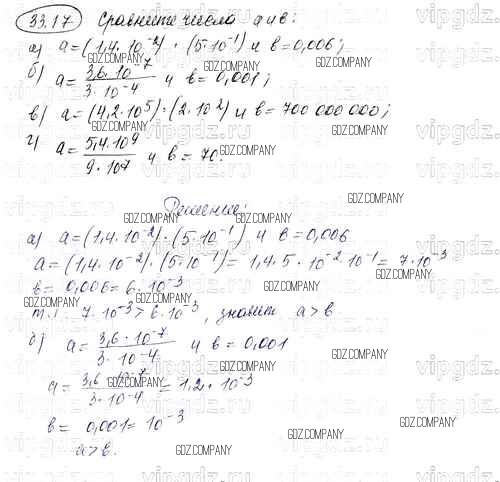 33.17 Сравните числа a и b:
а) a=(1,4·10⁻²)·(5·10⁻¹) и b=0,006;
б) a= 3,6·10⁻⁷ / 3·10⁻⁴ и b=0,001;
в) a=(4,2·10⁵)·(2·10²) и b=700 000 000;
г) a= 5,4·10⁹ / 9·10⁷ и b=70.
Решение:
а) a=(1,4·10⁻²)·(5·10⁻¹) и b=0,006
a=(1,4·10⁻²)·(5·10⁻¹)=1,4·5·10⁻²·10⁻¹=7·10⁻³
b=0,006=6·10⁻³
т.к. 7·10⁻³>6·10⁻³, значит a>b
б) a= 3,6·10⁻⁷ / 3·10⁻⁴ и b=0,001
a= 3,6·10⁻⁷ / 3·10⁻⁴ =1,2·10⁻³
b=0,001=10⁻³
a>b.
GDZ.COMPANY
vipgdz.ru